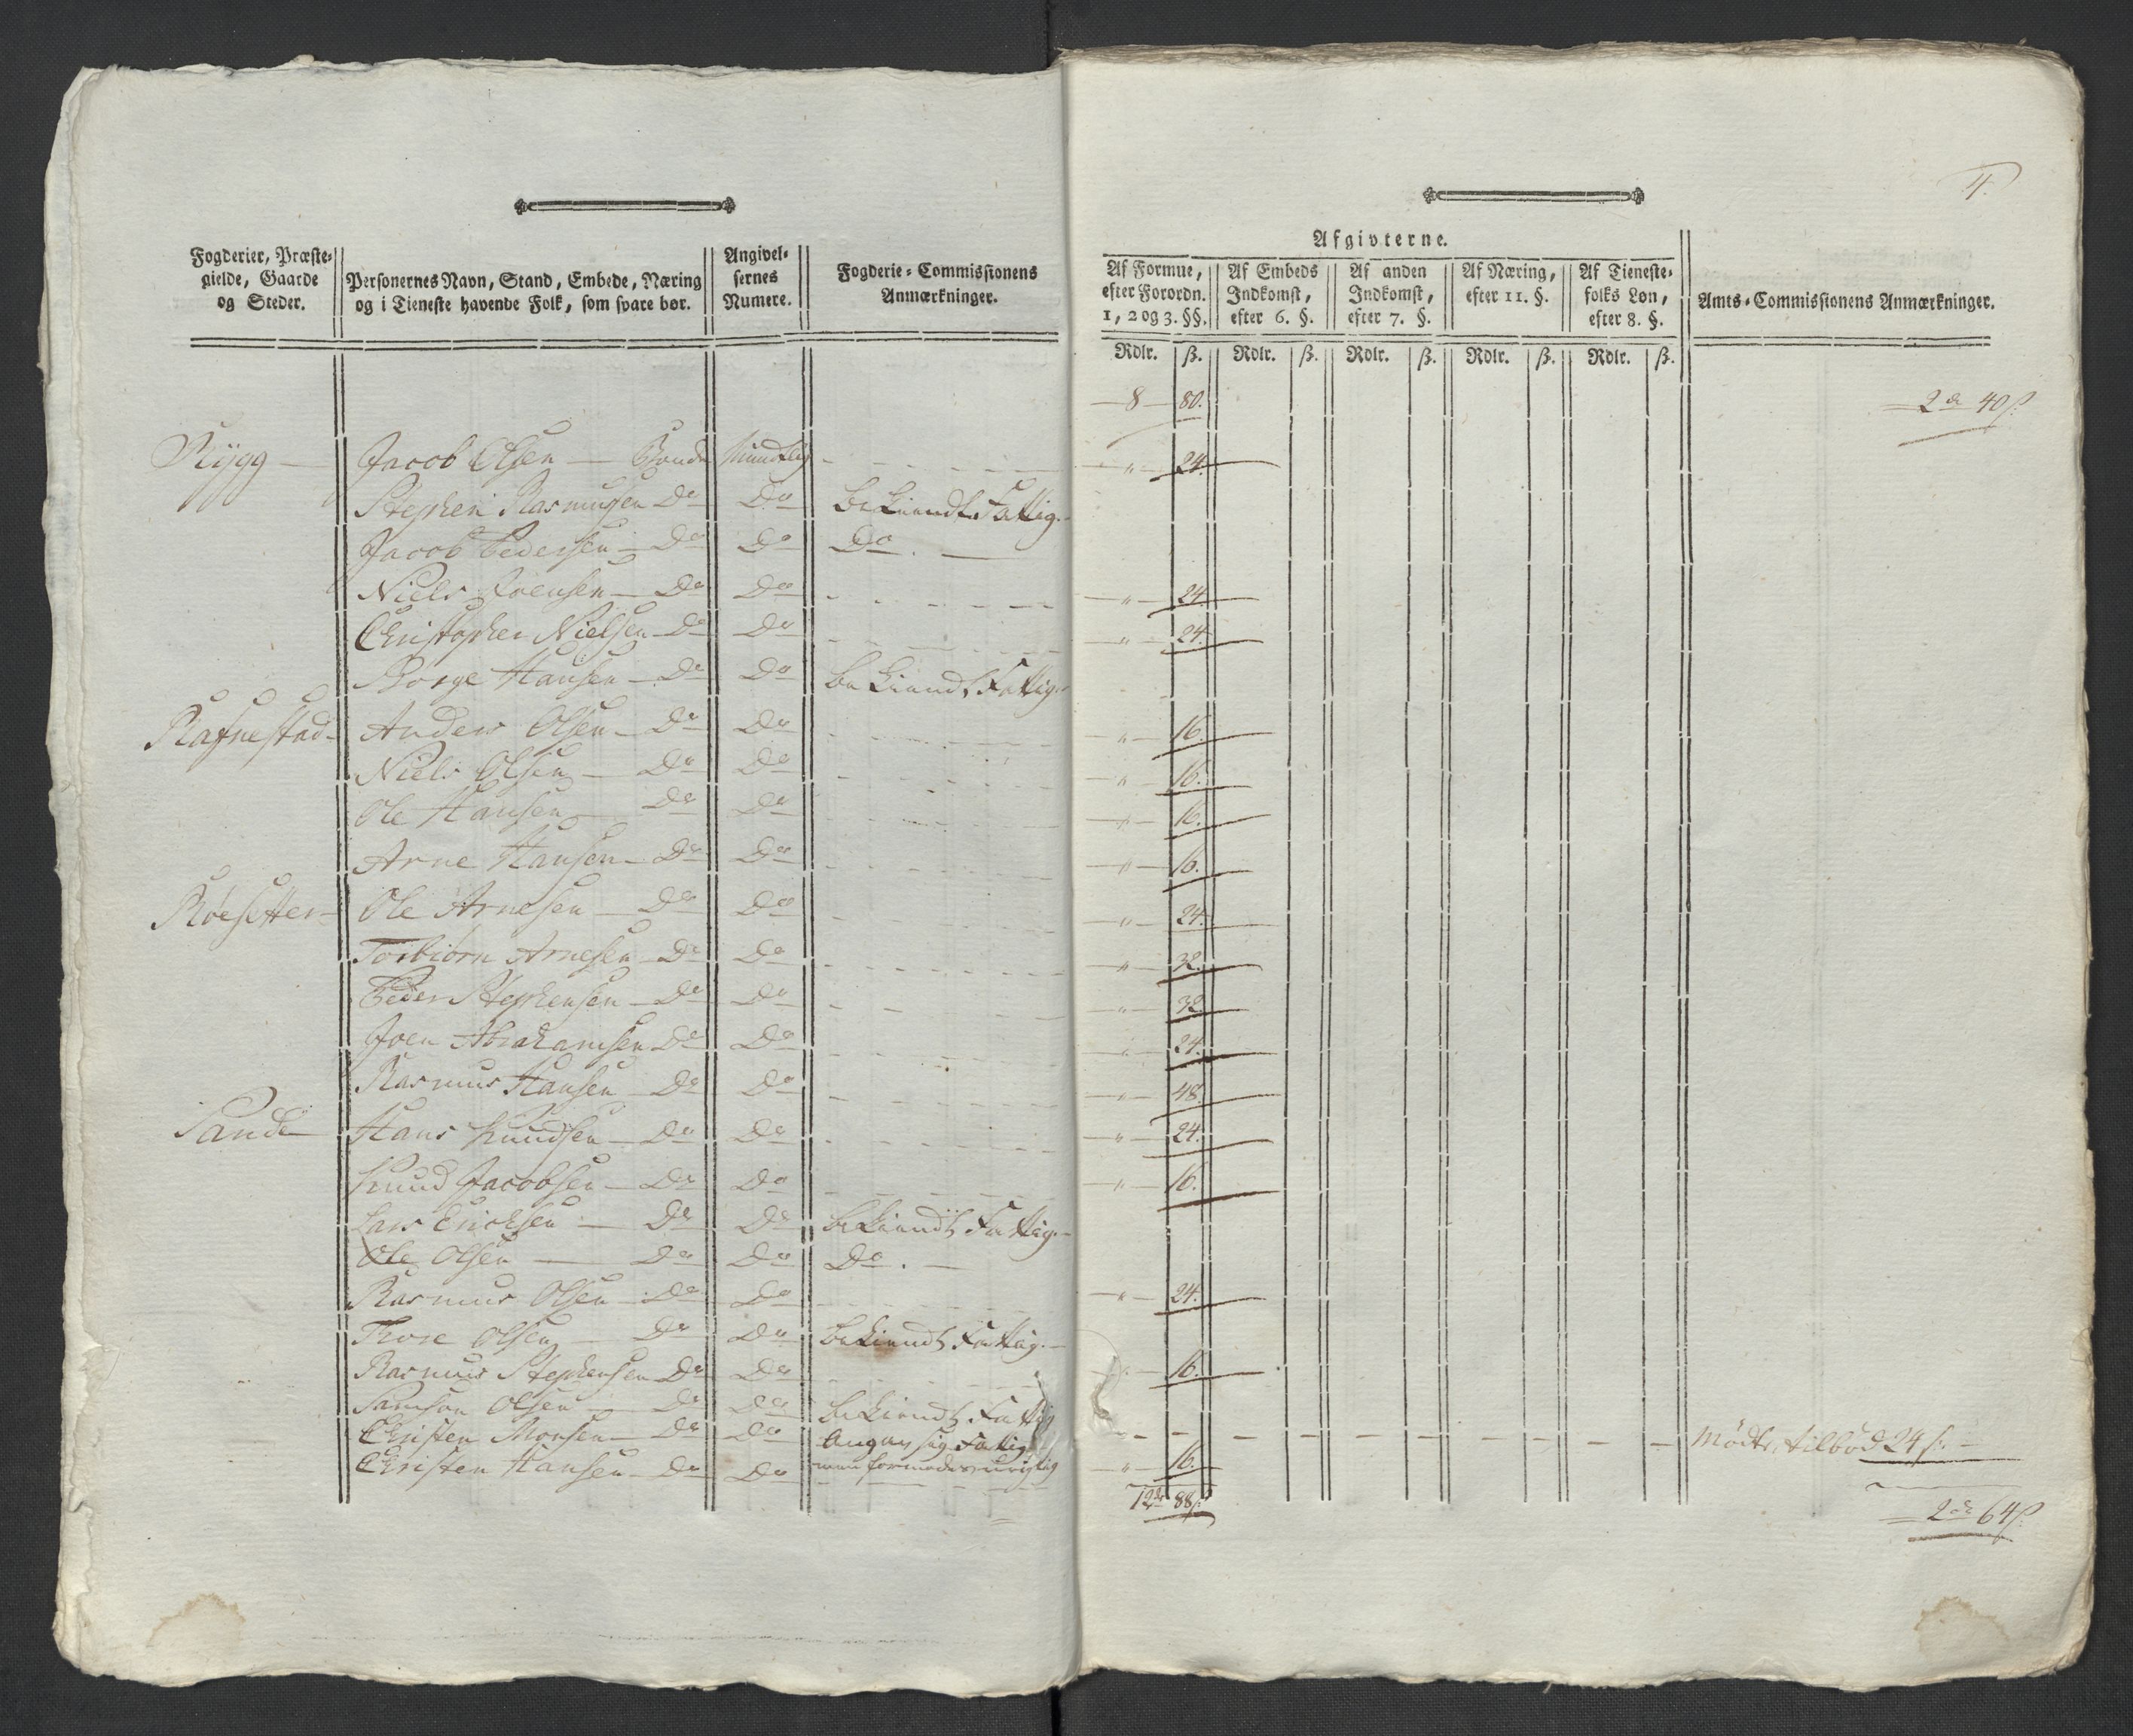 4.
Fogderier, Præste-
gielde, Gaarde
og Steder.
Personernes Navn, Stand, Embede, Næring
og i Tieneste havende Folk, som svare bør.
Angivel-
sernes
Numere.
Fogderie-Commissionens
Anmærkninger.
Afgivterne.
Af Formue,
efter Forordn.
1, 2 og 3. §§.
Af Embeds
Indkomst,
efter 6. §.
Af anden
Indkomst,
efter 7. §.
Af Næring,
efter 11. §.
Af Tieneste-
folks Løn,
efter 8. §.
Amts-Commissionens Anmærkninger.
Rdlr. ß. Rdlr. ß. Rdlr. ß. Rdlr. ß. Rdlr. ß.
8 80. 2 40ß.
Rÿgg Jacob Olsen Bonde Mundtlig " 24.
Stephen Rasmusen Do Do bekiendt Fattig.
Jacob Pedersen Do Do Do.
Niels Joensen Do Do " 24.
Christopher Nielsen Do Do " 24.
Børge Hansen Do Do bekiendt Fattig.
Rafnestad Anders Olsen Do Do " 16.
Niels Olsen Do Do " 16.
Ole Hansen Do Do " 16.
Arne Hansen Do Do " 16.
Røesetter Ole Arnesen Do Do " 24.
Torbiørn Arnesen Do Do " 32.
Peder Stephensen Do Do " 32.
Joen Abrahamsen Do Do " 24.
Rasmus Hansen Do Do " 48.
Sande Hans Knudsen Do Do " 24.
Knud Jacobsen Do Do " 16.
Lars Erichsen Do Do bekiendt Fattig.
Ole Olsen Do Do Do.
Rasmus Olsen Do Do " 24.
Thore Olsen Do Do bekiendt Fattig.
Rasmus Stephensen Do Do " 16.
Samson Olsen Do Do bekiendt Fattig
Christen Monsen Do Do Angav sig Fattig Mødte, tilbød 24 ß.
men formodes urigtig
Christen Hansen Do Do " 16.
12 88ß. 2 64ß.